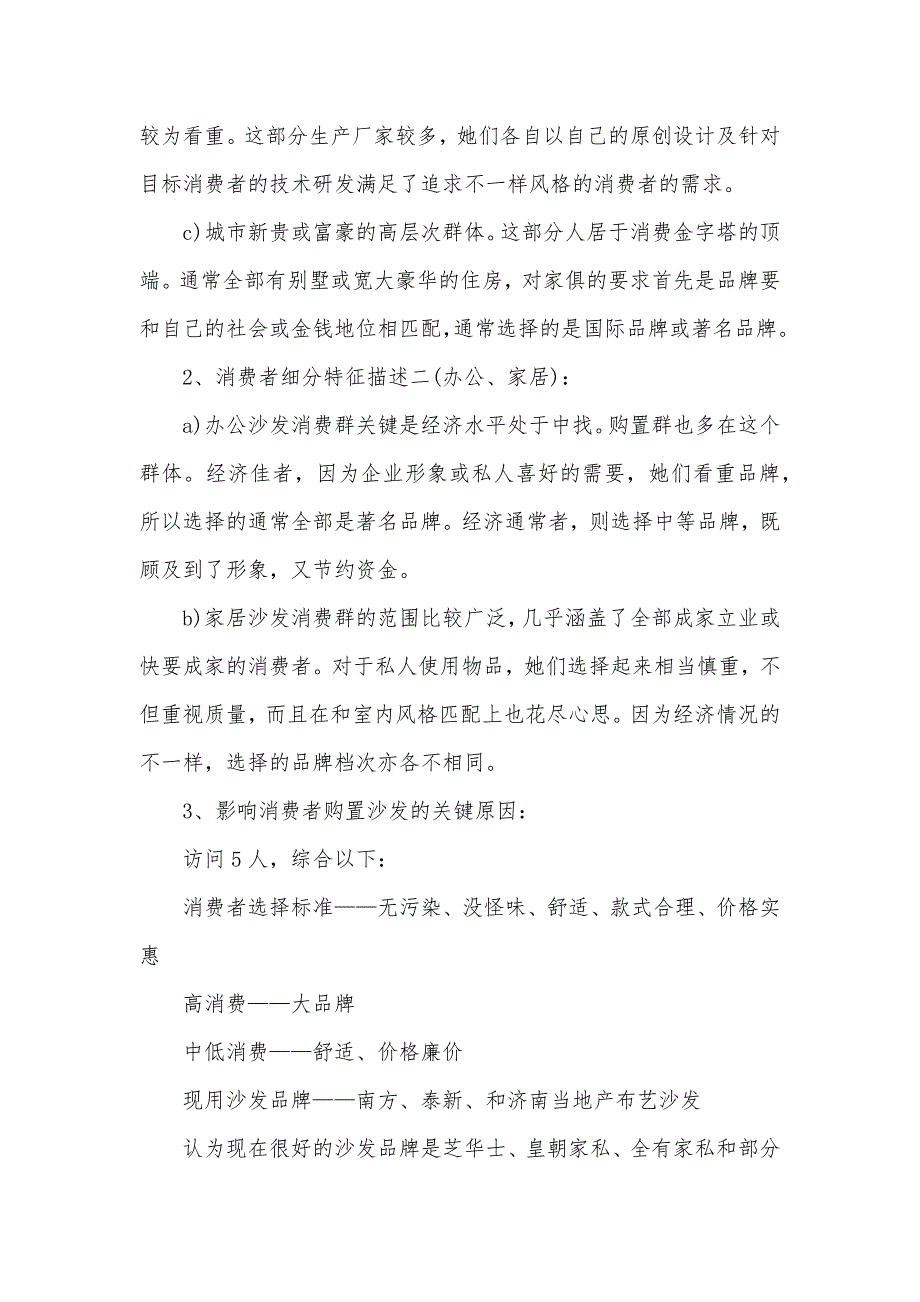 较为看重。这部分生产厂家较多，她们各自以自己的原创设计及针对
目标消费者的技术研发满足了追求不一样风格的消费者的需求。
c)城市新贵或富豪的高层次群体。这部分人居于消费金字塔的顶
端。通常全部有别墅或宽大豪华的住房，对家俱的要求首先是品牌要
和自己的社会或金钱地位相匹配，通常选择的是国际品牌或著名品牌。
2、消费者细分特征描述二(办公、家居)：
a)办公沙发消费群关键是经济水平处于中找。购置群也多在这个
群体。经济佳者，因为企业形象或私人喜好的需要，她们看重品牌，
所以选择的通常全部是著名品牌。经济通常者，则选择中等品牌，既
顾及到了形象，又节约资金。
b)家居沙发消费群的范围比较广泛，几乎涵盖了全部成家立业或
快要成家的消费者。对于私人使用物品，她们选择起来相当慎重，不
但重视质量，而且在和室内风格匹配上也花尽心思。因为经济情况的
不一样，选择的品牌档次亦各不相同。
3、影响消费者购置沙发的关键原因：
访问5人，综合以下：
消费者选择标准——无污染、没怪味、舒适、款式合理、价格实
惠
高消费——大品牌
中低消费——舒适、价格廉价
现用沙发品牌——南方、泰新、和济南当地产布艺沙发
认为现在很好的沙发品牌是芝华士、皇朝家私、全有家私和部分